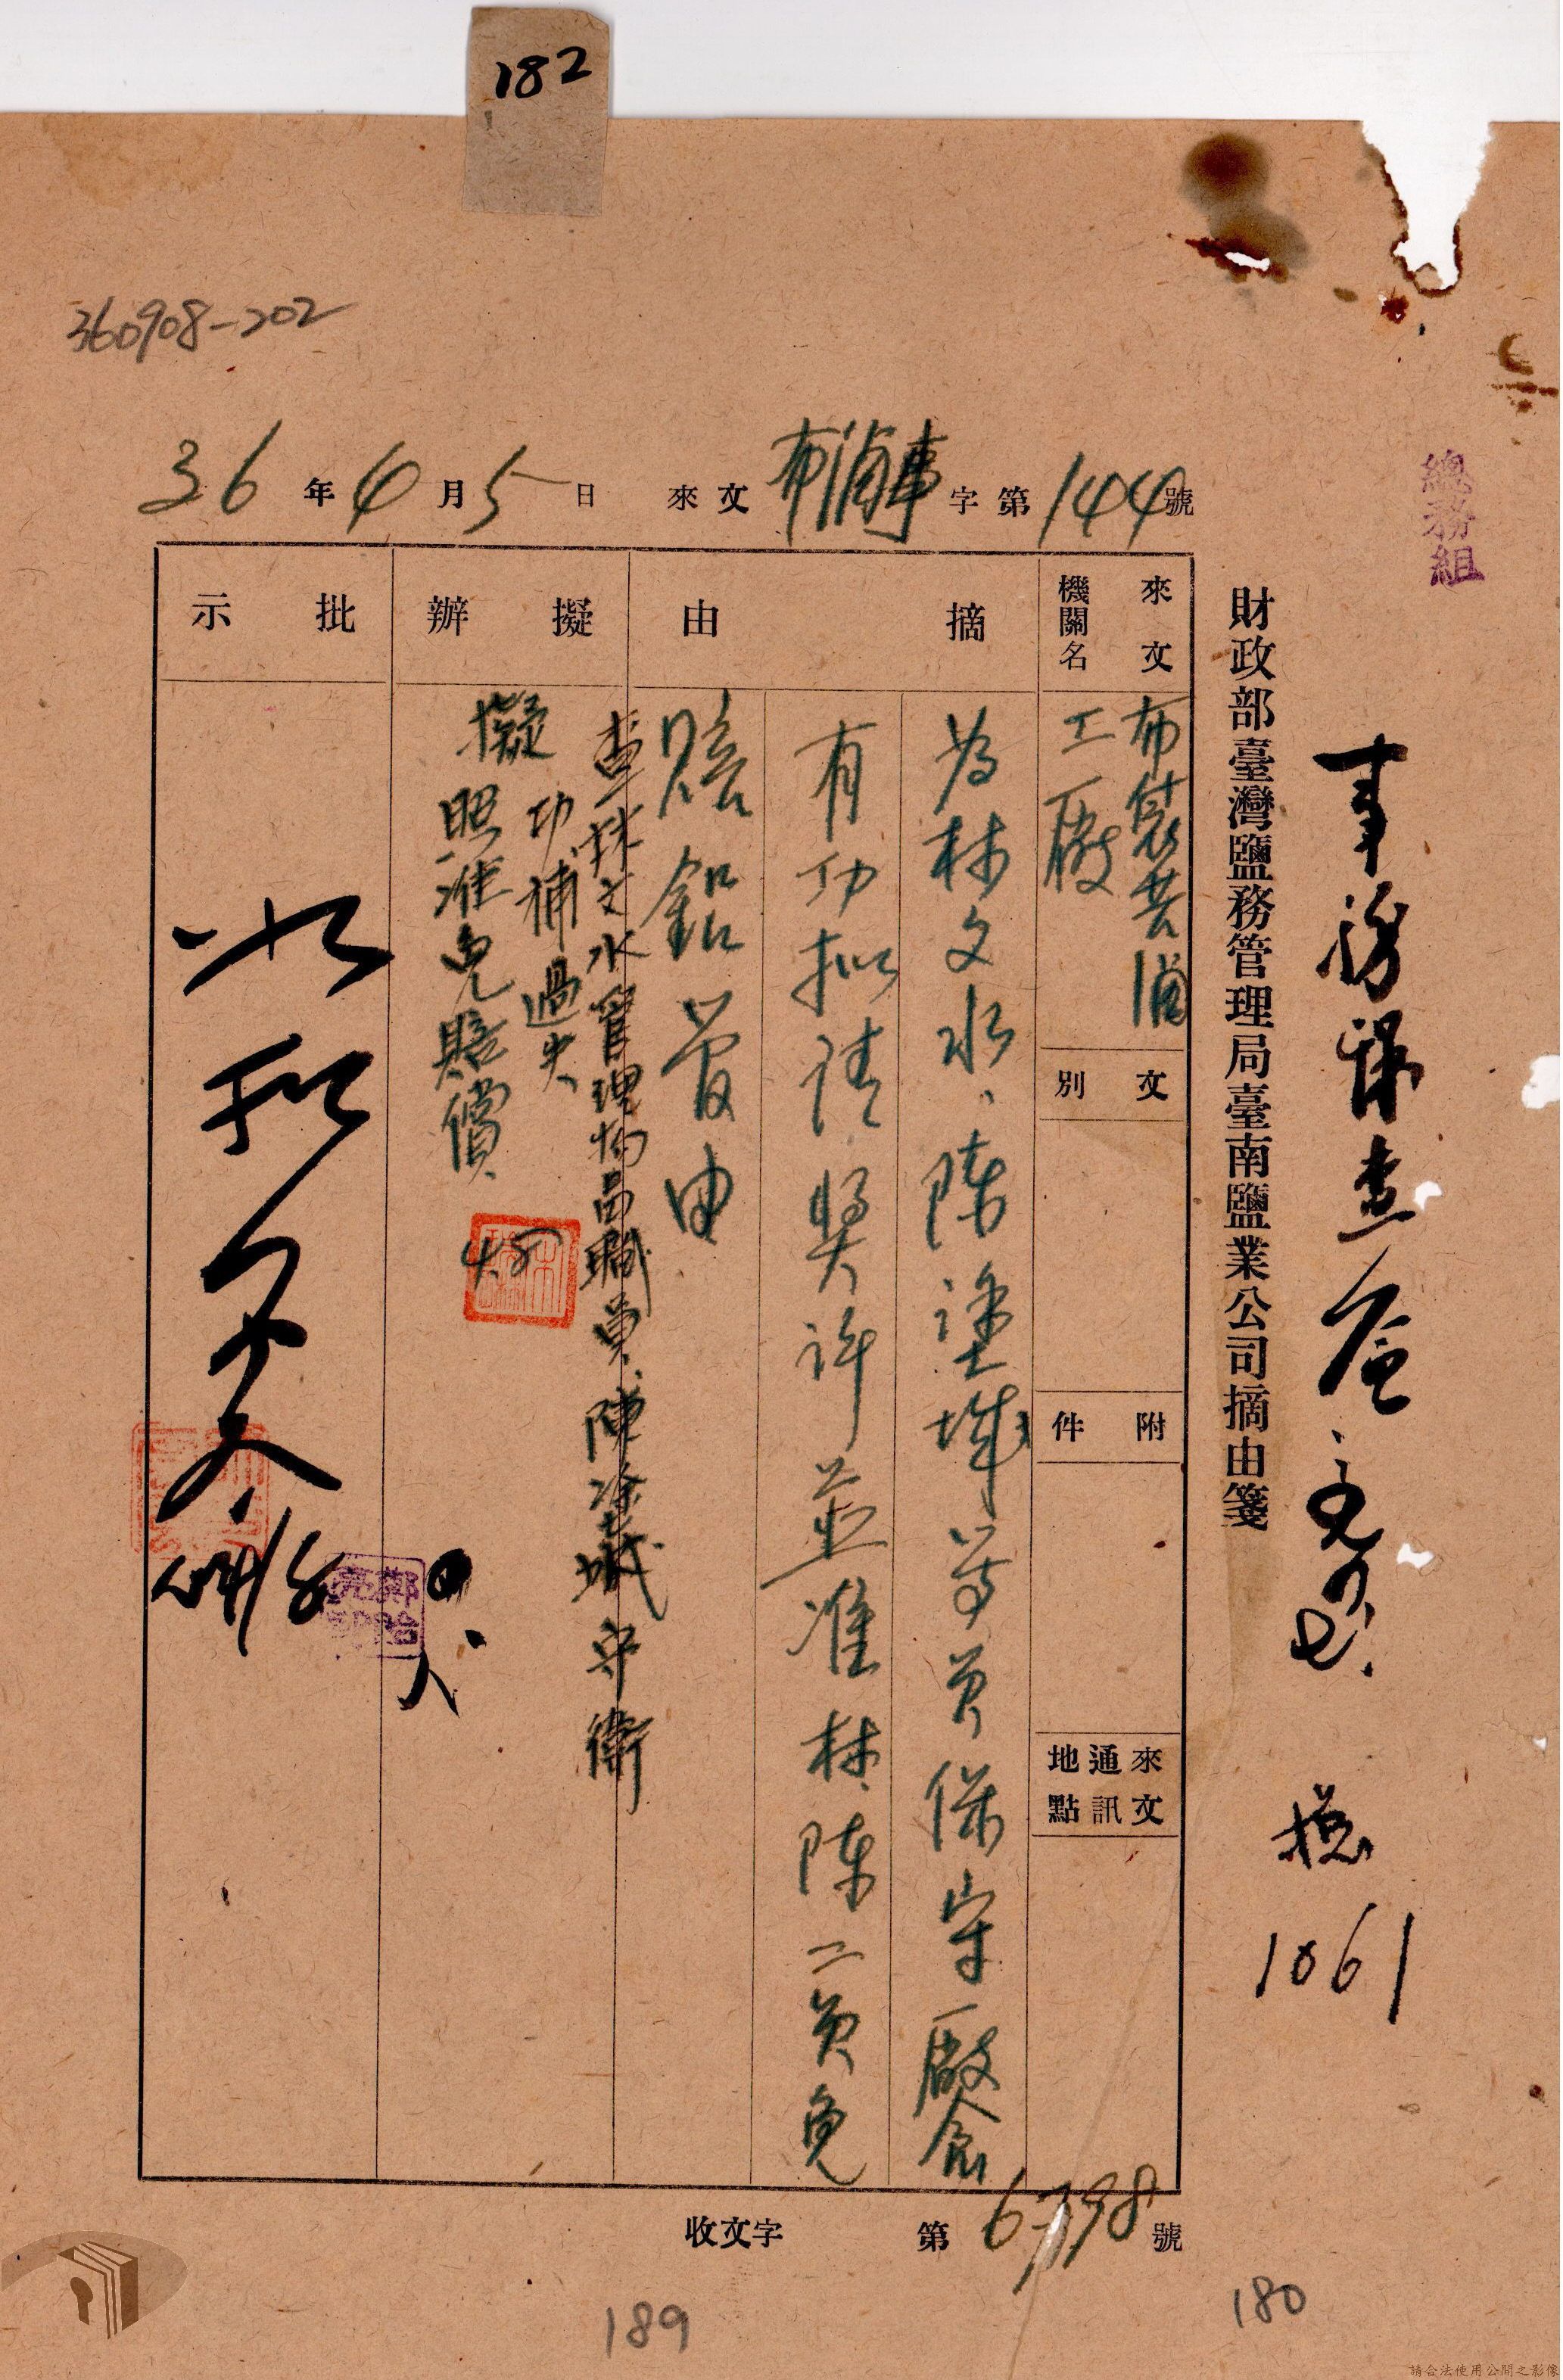 182
360908-202
總務組
事務課查簽意見
總
1061
財政部臺灣鹽務管理局臺南鹽業公司摘由箋
36年4月5日 來文 布浦事 字第144號
來文機關名
布袋
工廠
文別
附件
來文通訊地點
摘由
為林文水、陳塗城等員保守廠倉
有功擬請獎許並准林、陳二員免
賠鋁管由
擬辦
查林文水管理物品職員、陳塗城守衛
功補過失
擬照准免賠償
4.8
批示
如擬
鄭
收文字第6798號
189
180
請合法使用公開之影像